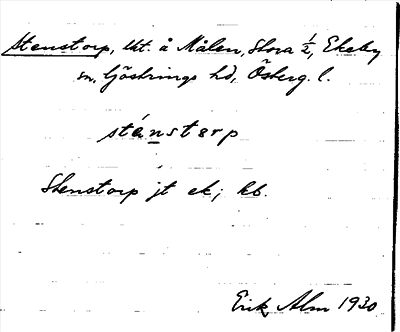 Stenstorp, lht. å Målen, Stora ½, Ekeby
sn, Göstrings hd, Österg. l.
sténstərp
Stenstorp jt ek; kb.
Erik Alm 1930